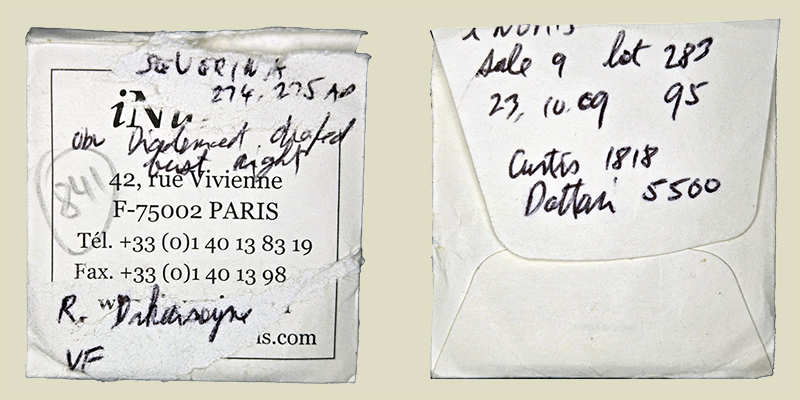 SEVERINA
274-275 AD
iNu
obv Diademed draped
bust right
841
42, rue Vivienne
F-75002 PARIS
Tél. +33 (0)1 40 13 83 19
Fax. +33 (0)1 40 13 98
R.
is.com
VF
iNumis
sale 9 lot 283
23, 10.09 95
Curtis 1818
Dattari 5500